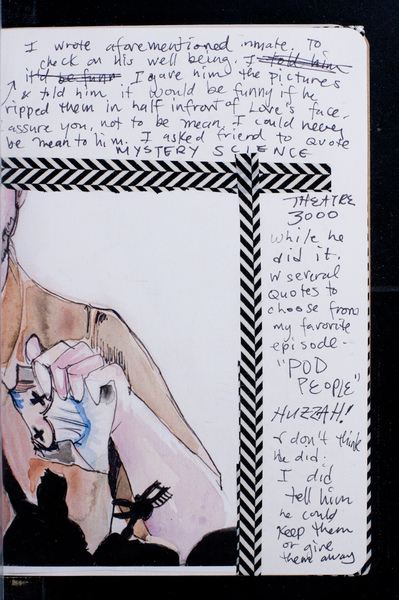 I wrote aforementioned inmate. To
check on his well being. I told him
it'd be funr I gave him the pictures
& told him it would be funny if he
ripped them in half infront of Love's face.
assure you, not to be mean, I could never
be mean to him. I asked friend to quote
MYSTERY SCIENCE
THEATRE
3000
while he
did it.
w several
quotes to
choose from
my favorite
episode-
"POD
PEOPLE"
HUZZAH!
I don't think
he did.
I did
tell him
he could
keep them
or give
them away